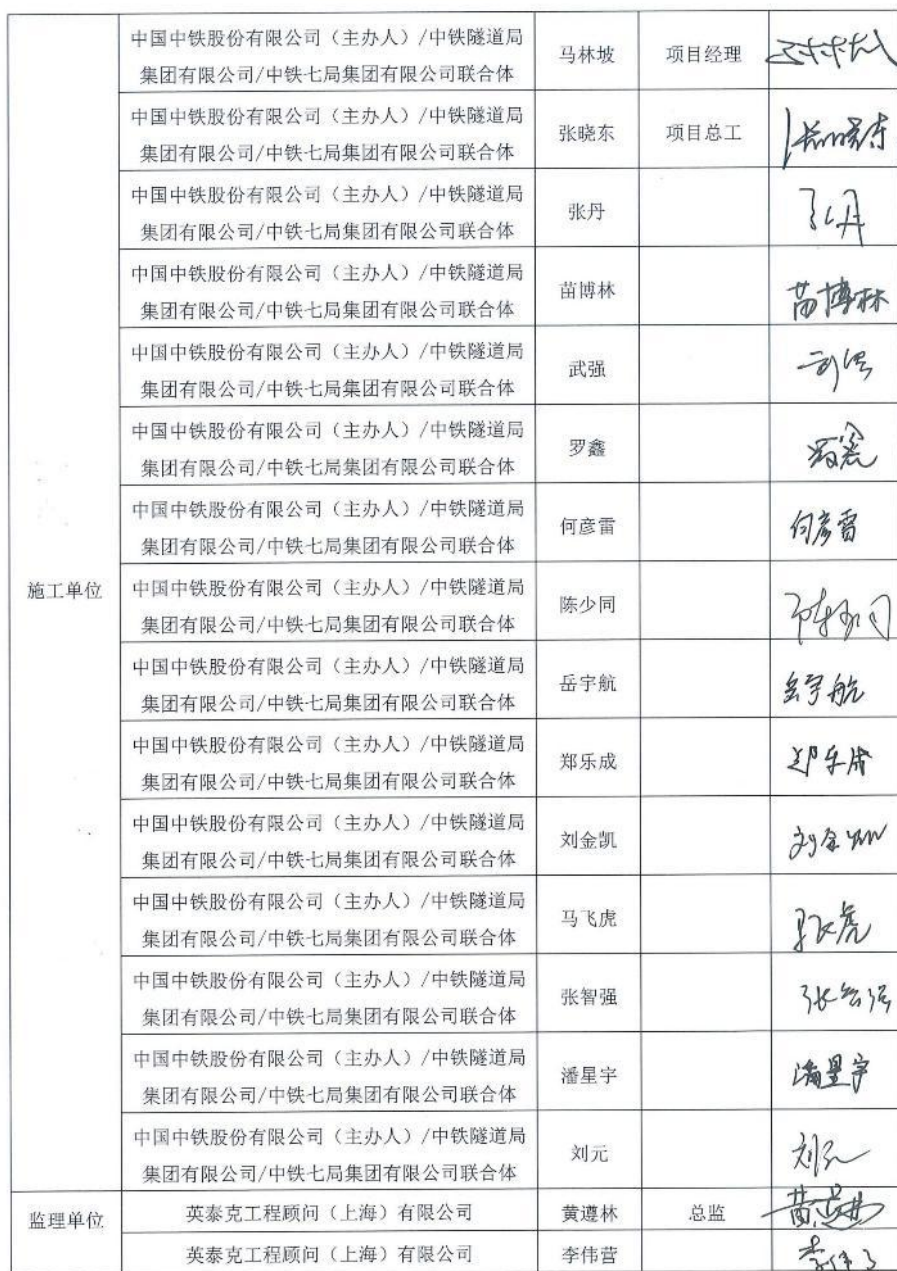 中国中铁股份有限公司（主办人）/中铁隧道局
集团有限公司/中铁七局集团有限公司联合体
马林坡 项目经理
中国中铁股份有限公司（主办人）/中铁隧道局
集团有限公司/中铁七局集团有限公司联合体
张晓东 项目总工 张晓东
中国中铁股份有限公司（主办人）/中铁隧道局
集团有限公司/中铁七局集团有限公司联合体
张丹 张丹
中国中铁股份有限公司（主办人）/中铁隧道局
集团有限公司/中铁七局集团有限公司联合体
苗博林 苗博林
中国中铁股份有限公司（主办人）/中铁隧道局
集团有限公司/中铁七局集团有限公司联合体
武强 武强
中国中铁股份有限公司（主办人）/中铁隧道局
集团有限公司/中铁七局集团有限公司联合体
罗鑫
中国中铁股份有限公司（主办人）/中铁隧道局
集团有限公司/中铁七局集团有限公司联合体
何彦雷 何彦雷
施工单位
中国中铁股份有限公司（主办人）/中铁隧道局
集团有限公司/中铁七局集团有限公司联合体
陈少同 陈少同
中国中铁股份有限公司（主办人）/中铁隧道局
集团有限公司/中铁七局集团有限公司联合体
岳宇航 岳宇航
中国中铁股份有限公司（主办人）/中铁隧道局
集团有限公司/中铁七局集团有限公司联合体
郑乐成 郑乐成
中国中铁股份有限公司（主办人）/中铁隧道局
集团有限公司/中铁七局集团有限公司联合体
刘金凯 刘金凯
中国中铁股份有限公司（主办人）/中铁隧道局
集团有限公司/中铁七局集团有限公司联合体
马飞虎 马飞虎
中国中铁股份有限公司（主办人）/中铁隧道局
集团有限公司/中铁七局集团有限公司联合体
张智强 张智强
中国中铁股份有限公司（主办人）/中铁隧道局
集团有限公司/中铁七局集团有限公司联合体
潘星宇 潘星宇
中国中铁股份有限公司（主办人）/中铁隧道局
集团有限公司/中铁七局集团有限公司联合体
刘元 刘元
监理单位 英泰克工程顾问（上海）有限公司 黄遵林 总监
英泰克工程顾问（上海）有限公司 李伟营